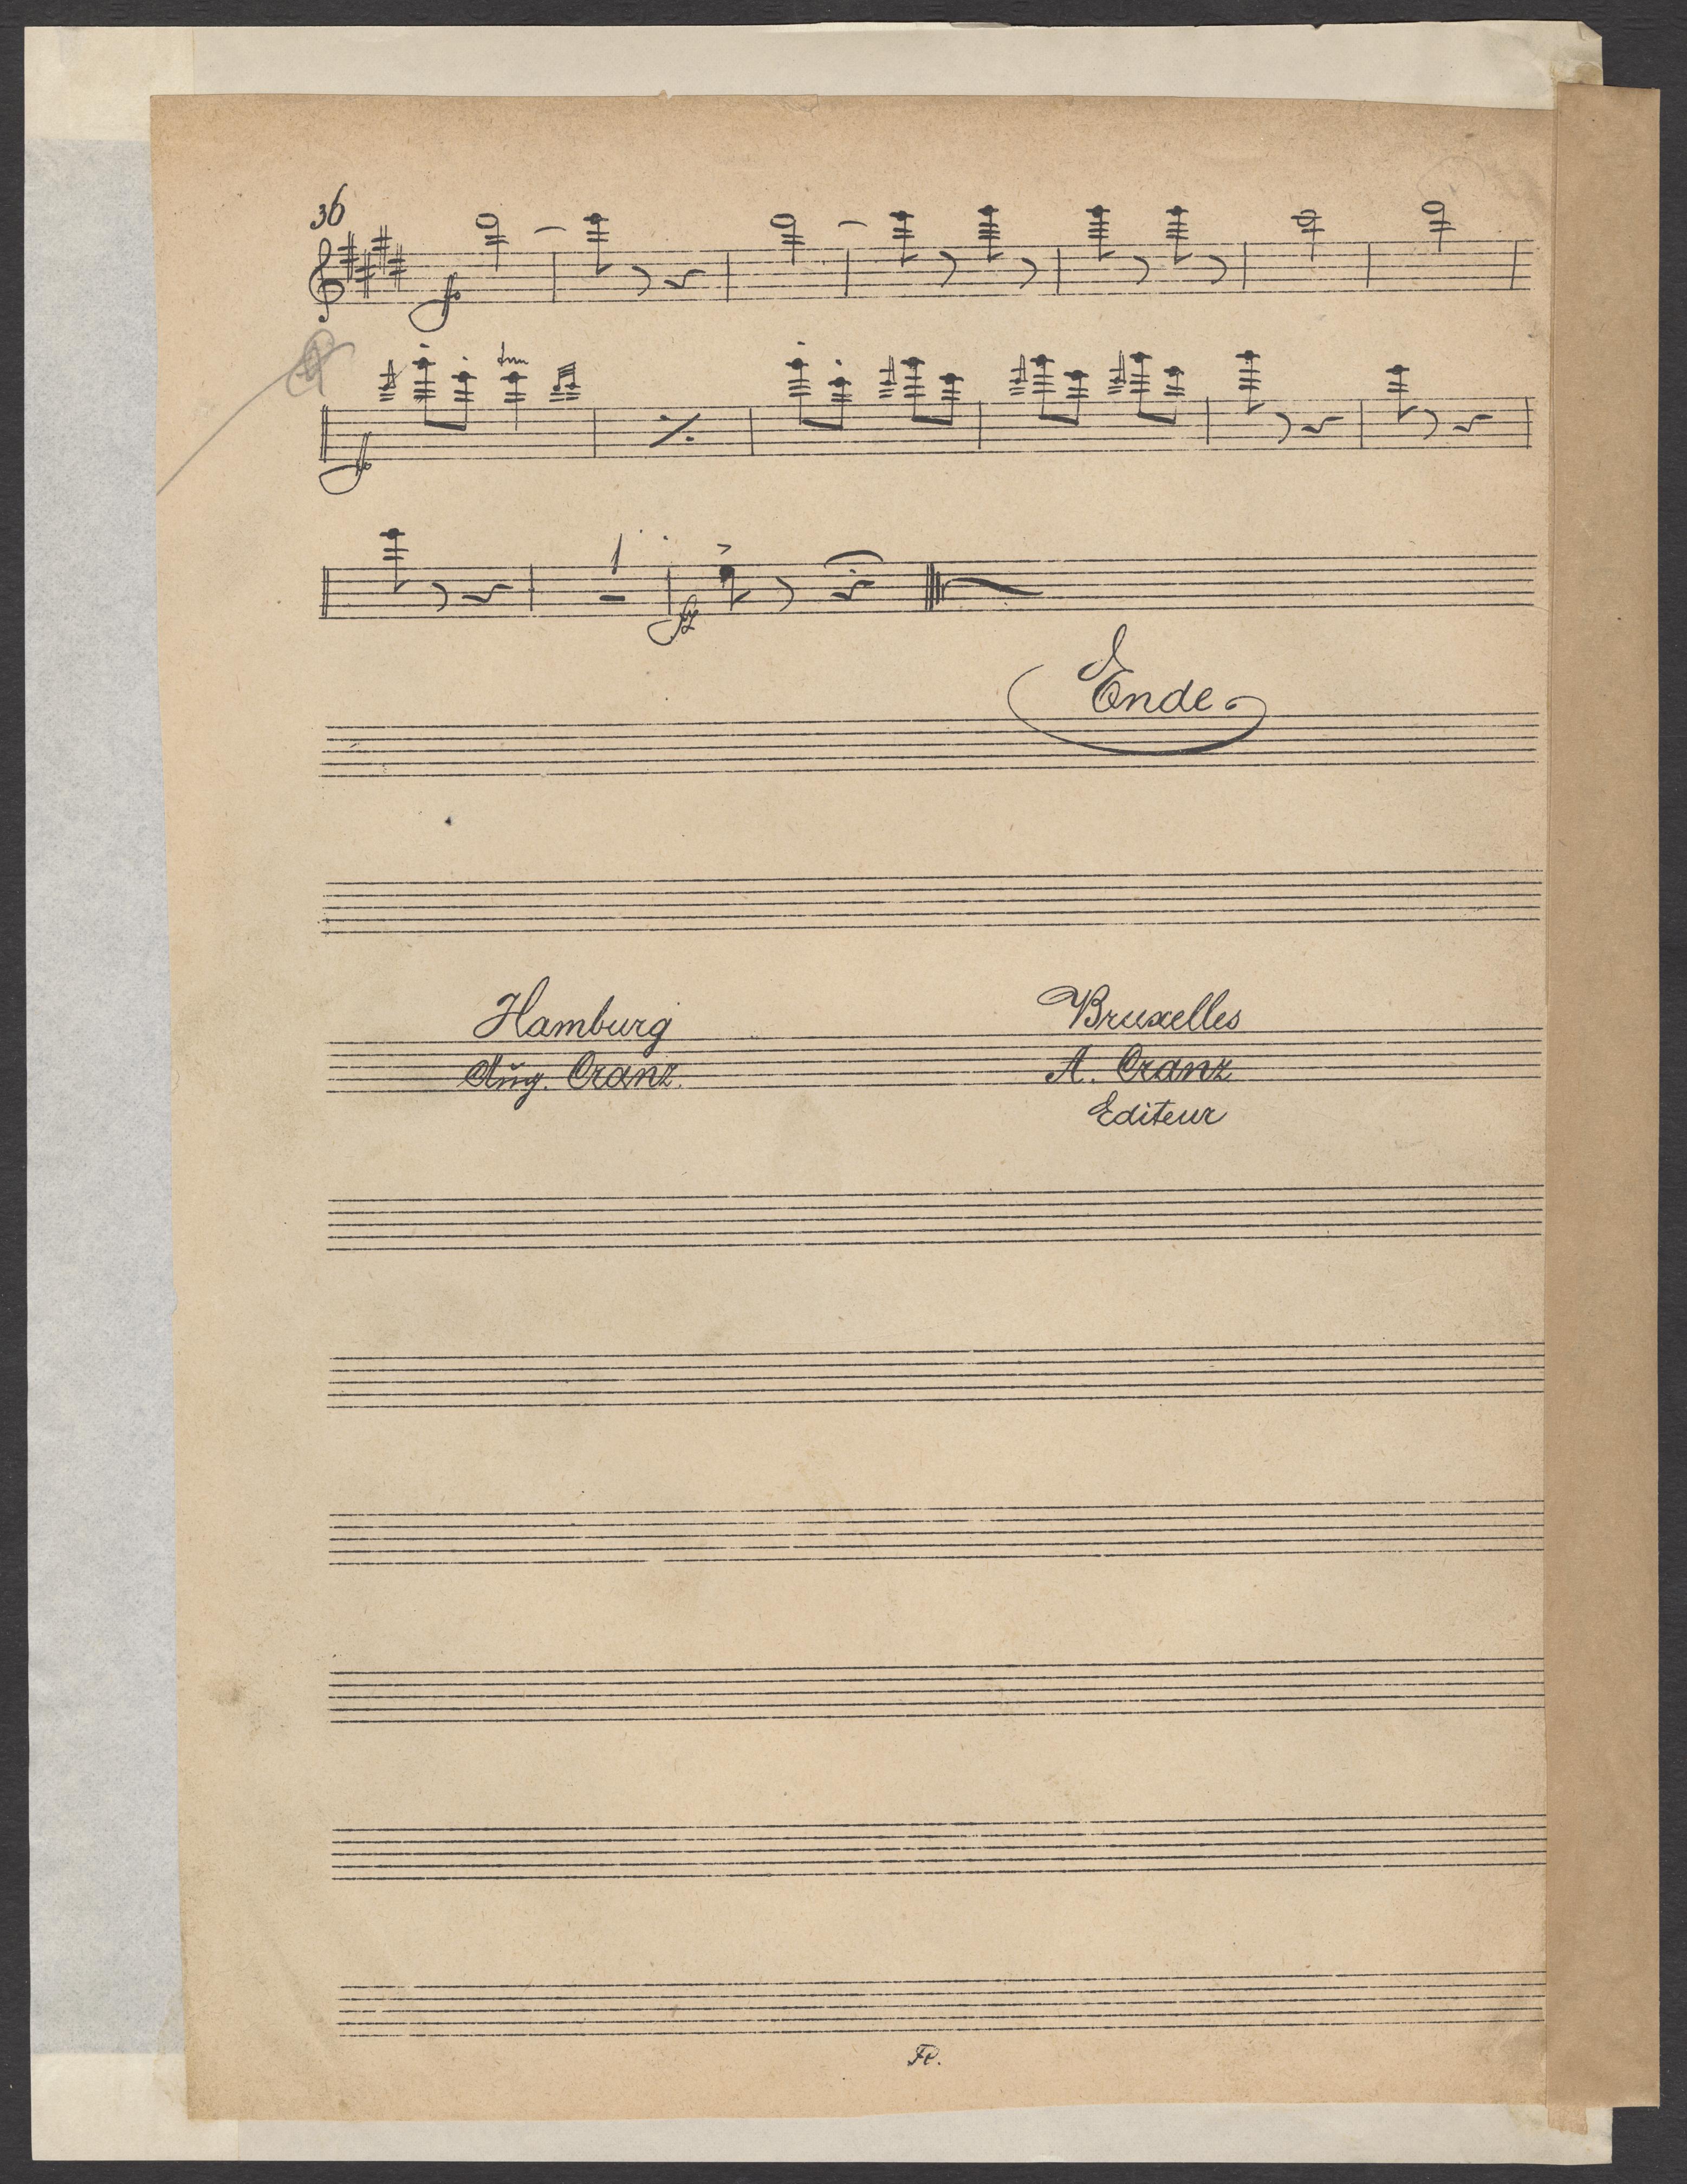 36
ff
tr
ff
1
fz
Ende
Hamburg
Aug. Cranz.
Bruxelles
A. Cranz
Editeur
Fl.